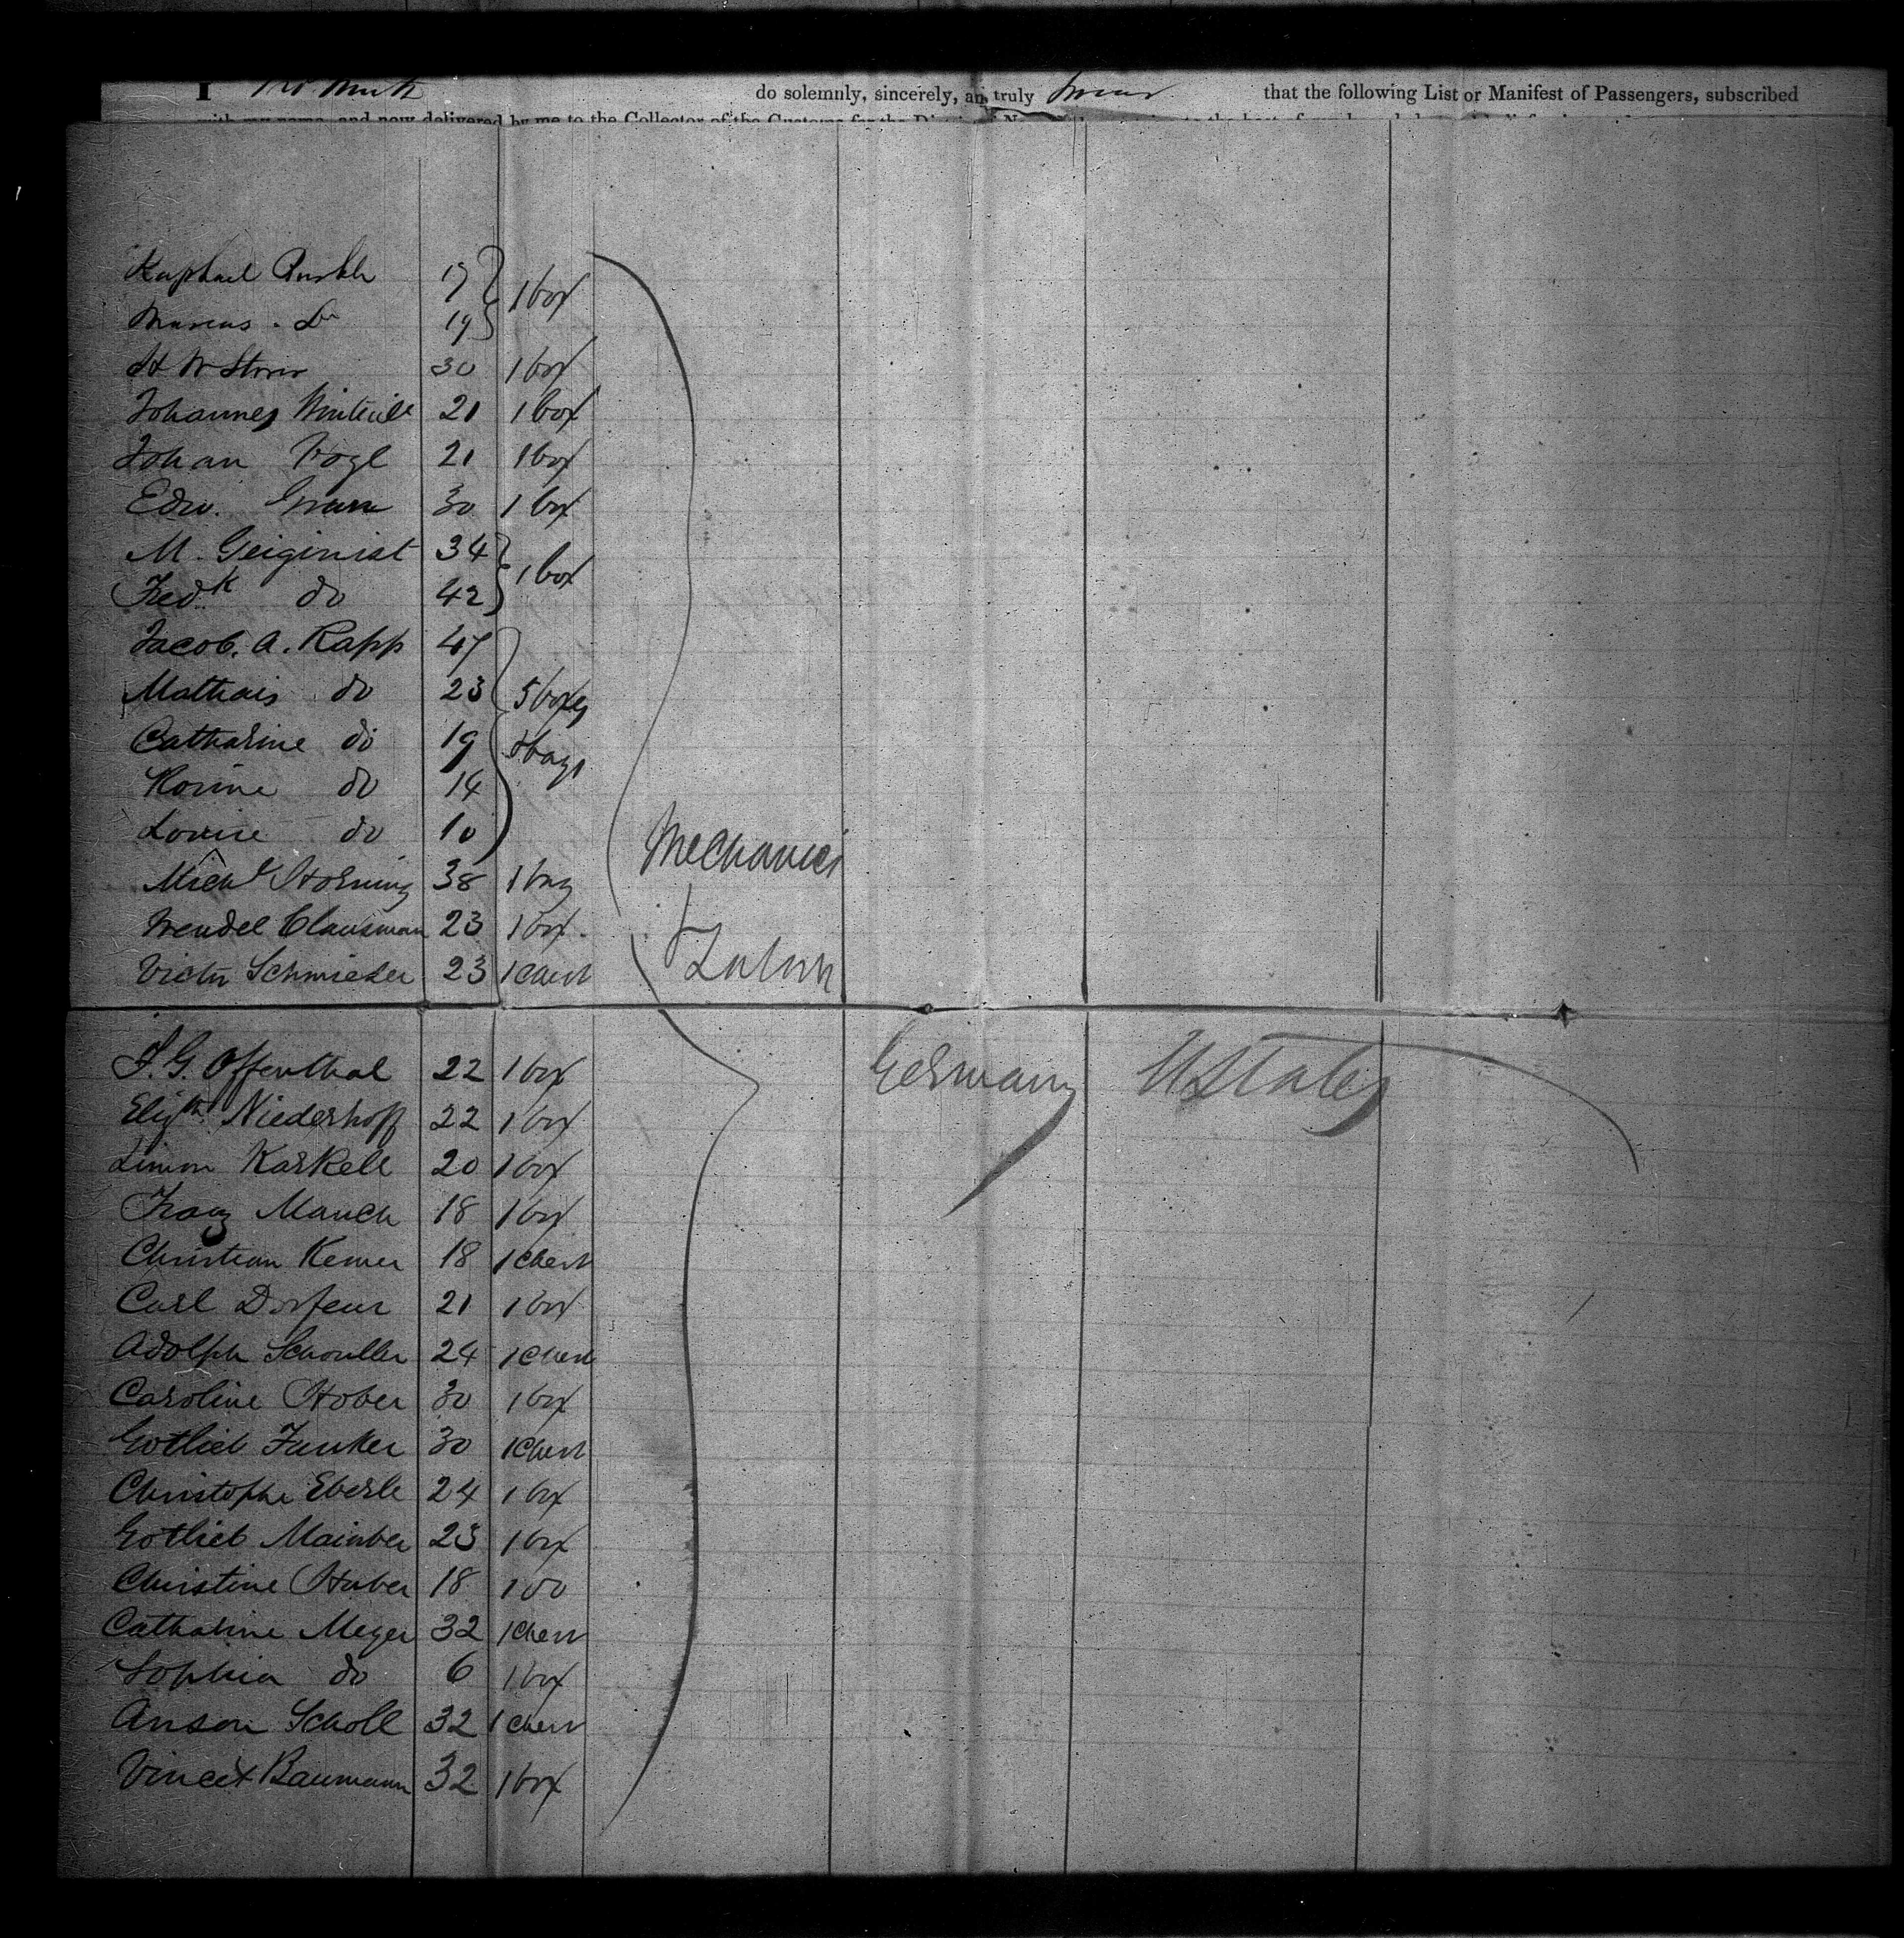 I do solemnly, sincerely, and truly swear that the following List or Manifest of Passengers, subscribed
with my name, and now delivered by me to the Collector of the Customs for the
Raphael 19
Marcus Do 19
1 box
H W Storer 30 1 box
Johannes 21 1 box
Johan Vogl 21 1 box
Edw. 30 1 box
M. Geiginist 34
1 box
Fredk do 42
Jacob. A. Rapp 47
Mathais do 23 5 boxes
Catharine do 19 bags
Rosine do 14
Louise do 10
Mechanics
Michl Horning 38 1 bag
Wendel Clausman 23 1 box.
Victor Schmieder 23 1 Chest
F. G. Offenthal 22 1 box
Germany UStates
Elizth Niederhoff 22 1 box
Simon Karkell 20 1 box
Franz Mauch 18 1 box
Christian Kemer 18 1 Chest
Carl 21 1 box
Adolph Schouller 24 1 Chest
Caroline Hober 30 1 box
Gotlieb Junker 30 1 Chest
Christophe Eberle 24 1 box
Gotlieb Mainber 23 1 box
Christine Huber 18 1 do
Catharine Meyer 32 1 Chest
Sophia do 6 1 box
Anson Scholl 32 1 Chest
Vincet Baumann 32 1 box